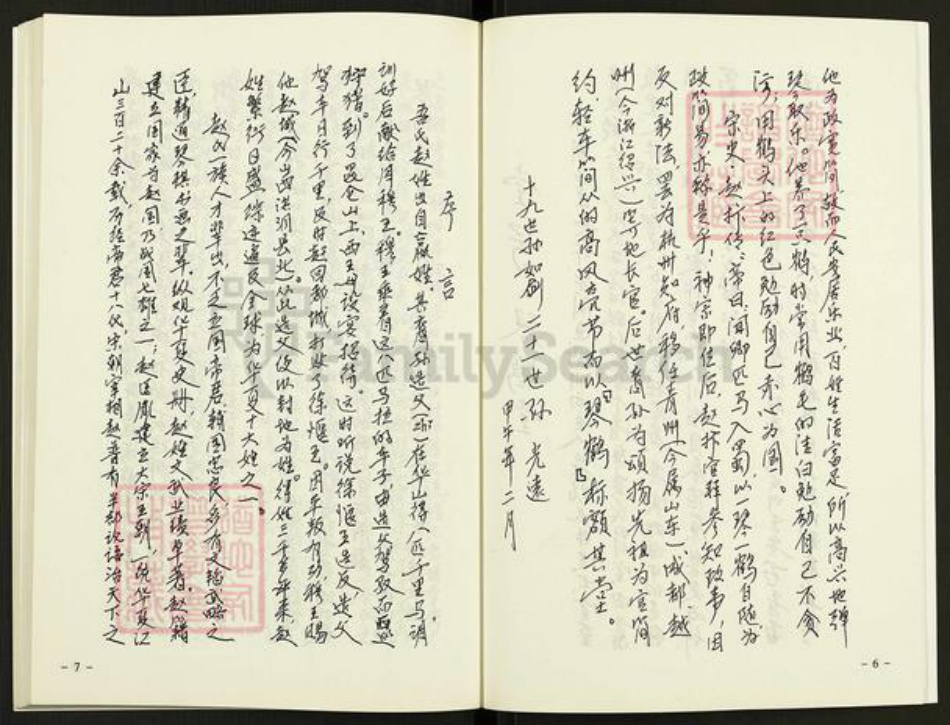 他为政宽简，故而人民安居乐业，百姓生活富足，所以高兴地弹
琴取乐。他养了只鹤，时常用鹤毛的洁白勉励自己不贪
污；用鹤头上的红色勉励自己赤心为国。
宋史·赵抃传：帝曰：闻卿匹马入蜀，以一琴一鹤自随，为
政简易，亦称是乎！神宗即位后，赵抃官拜参知政事，因
反对新法，罢为杭州知府，移任青州(今属山东)、成都、越
州(今浙江绍兴)等地长官。后世裔孙为颂扬先祖为官简
约，轻车简从的高风亮节而以“琴鹤”标额其堂。
十九世孙如剑 二十一世孙 光远
甲午年二月
- 6 -
序言
吾氏赵姓出自嬴姓。其裔孙造父(邳)在华山得八匹千里马，调
训好后献给周穆王。穆王乘着这八匹马拉的车子，由造父驾驭而西巡
狩猎。到了昆仑山上，西王母设宴招待。这时听说徐偃王造反，造父
驾车日行千里，及时赶回都城，打败了徐偃王。因平叛有功，穆王赐
他赵城(今山西洪洞县北)从此造父便以封地为姓。得姓三千年来，赵
姓繁衍日盛，综迹遍及全球，为华夏十大姓之一。
赵氏一族人才辈出，不乏立国帝君，辅国忠良，多有文韬武略之
臣，精通琴棋书画之辈，纵观华夏史册，赵姓文武业绩卓著。赵籍
建立国家为赵国，乃战国七雄之一；赵匡胤建立大宋王朝，一统华夏江
山三百二十余载，历经帝君十八代，宋朝宰相赵普有半部论语治天下之
- 7 -
FamilySearch